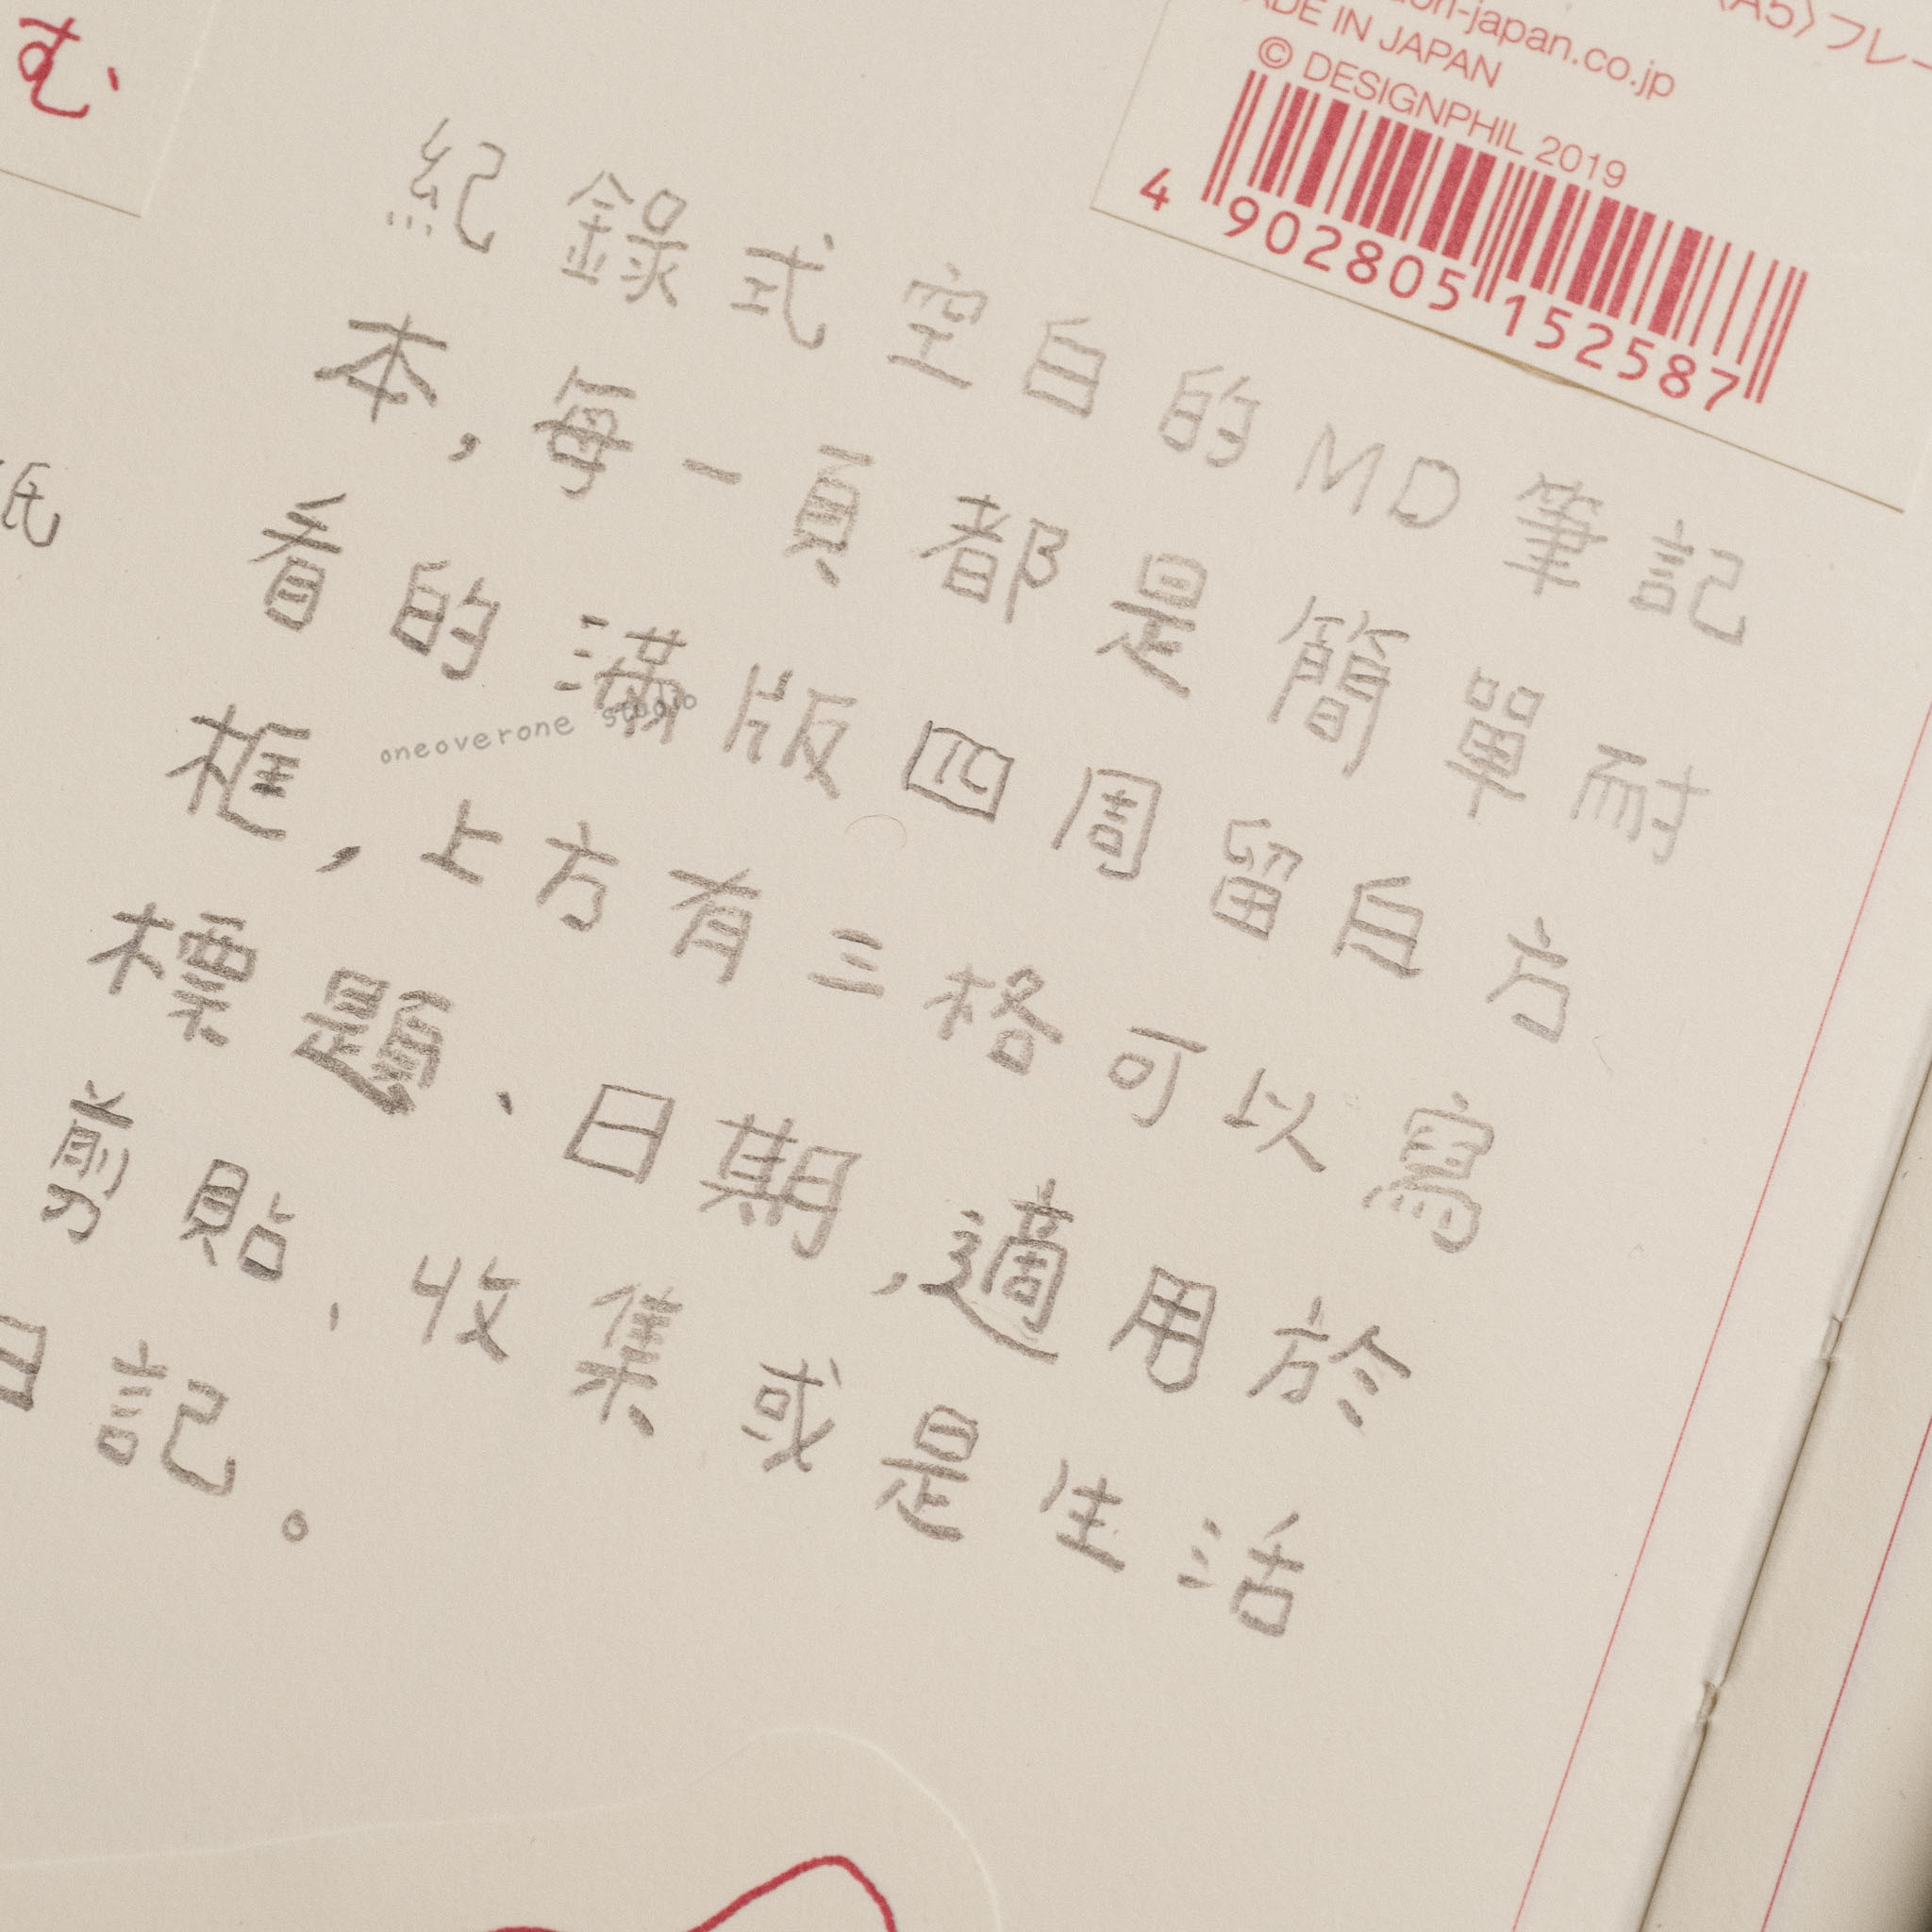 〈A5〉フレー
on-japan.co.jp
ADE IN JAPAN
© DESIGNPHIL 2019
4 902805 152587
む
紙
紀錄式空白的MD筆記
本，每一頁都是簡單耐
看的滿版四周留白方
框，上方有三格可以寫
標題、日期，適用於
剪貼、收集或是生活
日記。
oneoverone studio